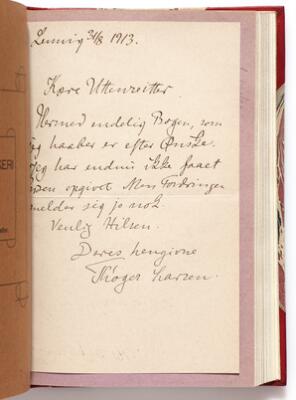 Lemvig 31/8 1913.
Kære Uttenreitter
Hermed endelig Bogen, som
jeg haaber er efter Ønske.
Jeg har endnu ikke faaet
opgivet Men Fordringen
melder sig jo nok.
Venlig Hilsen.
Deres hengivne
Thøger Larsen.
SERI